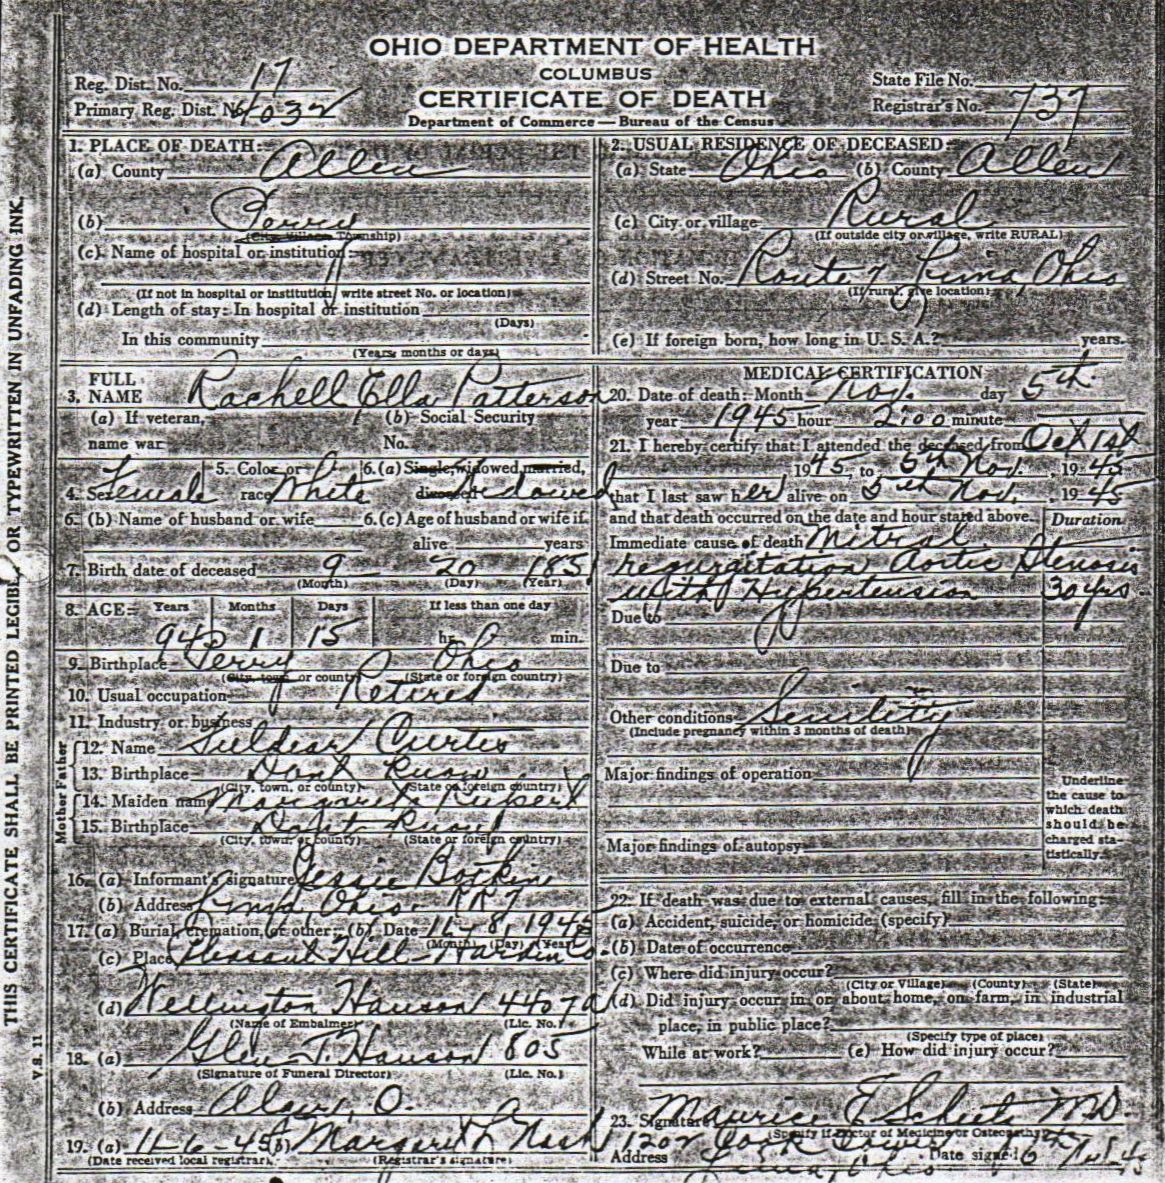 OHIO DEPARTMENT OF HEALTH
COLUMBUS
CERTIFICATE OF DEATH
Department of Commerce — Bureau of the Census
Reg. Dist. No. 17
Primary Reg. Dist. No. 4032
State File No.
Registrar's No. 737
THIS CERTIFICATE SHALL BE PRINTED LEGIBLY OR TYPEWRITTEN IN UNFADING INK.
V. S. 11
1. PLACE OF DEATH:
(a) County Allen
(b) Perry
(City, Village, Township)
(c) Name of hospital or institution:
(If not in hospital or institution, write street No. or location)
(d) Length of stay: In hospital or institution
(Days)
In this community
(Years, months or days)
2. USUAL RESIDENCE OF DECEASED:
(a) State Ohio (b) County Allen
(c) City or village Rural
(If outside city or village, write RURAL)
(d) Street No. Route 7 Lima, Ohio
(If rural, give location)
(e) If foreign born, how long in U. S. A.? years.
3. FULL NAME Rachell Ella Patterson
(a) If veteran, name war
(b) Social Security No.
4. Sex Female 5. Color or race White 6. (a) Single, widowed, married, divorced Widowed
6. (b) Name of husband or wife 6. (c) Age of husband or wife if
alive years
7. Birth date of deceased 9 20 1851
(Month) (Day) (Year)
8. AGE: Years Months Days If less than one day
94 1 15 hr. min.
9. Birthplace Perry Ohio
(City, town, or county) (State or foreign country)
10. Usual occupation Retired
11. Industry or business
Father
12. Name Curtis
13. Birthplace Dont know
(City, town, or county) (State or foreign country)
Mother
14. Maiden name Margaret Rupert
15. Birthplace Don't know
(City, town, or county) (State or foreign country)
16. (a) Informant's signature Jessie Botkin
(b) Address Lima, Ohio RR 7
17. (a) Burial, cremation, or other (b) Date 11-8, 1945
(Month) (Day) (Year)
(c) Place Pleasant Hill Hardin Co.
(d) Wellington Hanson 4407 a
(Name of Embalmer) (Lic. No.)
18. (a) Glen T. Hanson 805
(Signature of Funeral Director) (Lic. No.)
(b) Address Alger, O.
19. (a) 11-6-45 (b) Margaret L Nash
(Date received local registrar) (Registrar's signature)
MEDICAL CERTIFICATION
20. Date of death: Month Nov. day 5th
year 1945 hour 2:00 minute
21. I hereby certify that I attended the deceased from Oct 1st
1945, to 5th Nov., 1945
that I last saw her alive on 5th Nov., 1945
and that death occurred on the date and hour stated above.
Duration
Immediate cause of death Mitral
regurgitation Aortic Stenosis
with Hypertension 30 yrs.
Due to
Due to
Other conditions Senility
(Include pregnancy within 3 months of death)
Major findings of operation
Major findings of autopsy
Underline the cause to which death should be charged statistically.
22. If death was due to external causes, fill in the following:
(a) Accident, suicide, or homicide (specify)
(b) Date of occurrence
(c) Where did injury occur?
(City or Village) (County) (State)
(d) Did injury occur in or about home, on farm, in industrial
place, in public place?
(Specify type of place)
While at work? (e) How did injury occur?
23. Signature Maurice M.D.
(Specify if Doctor of Medicine or Osteopathy)
Address Lima, Ohio Date signed